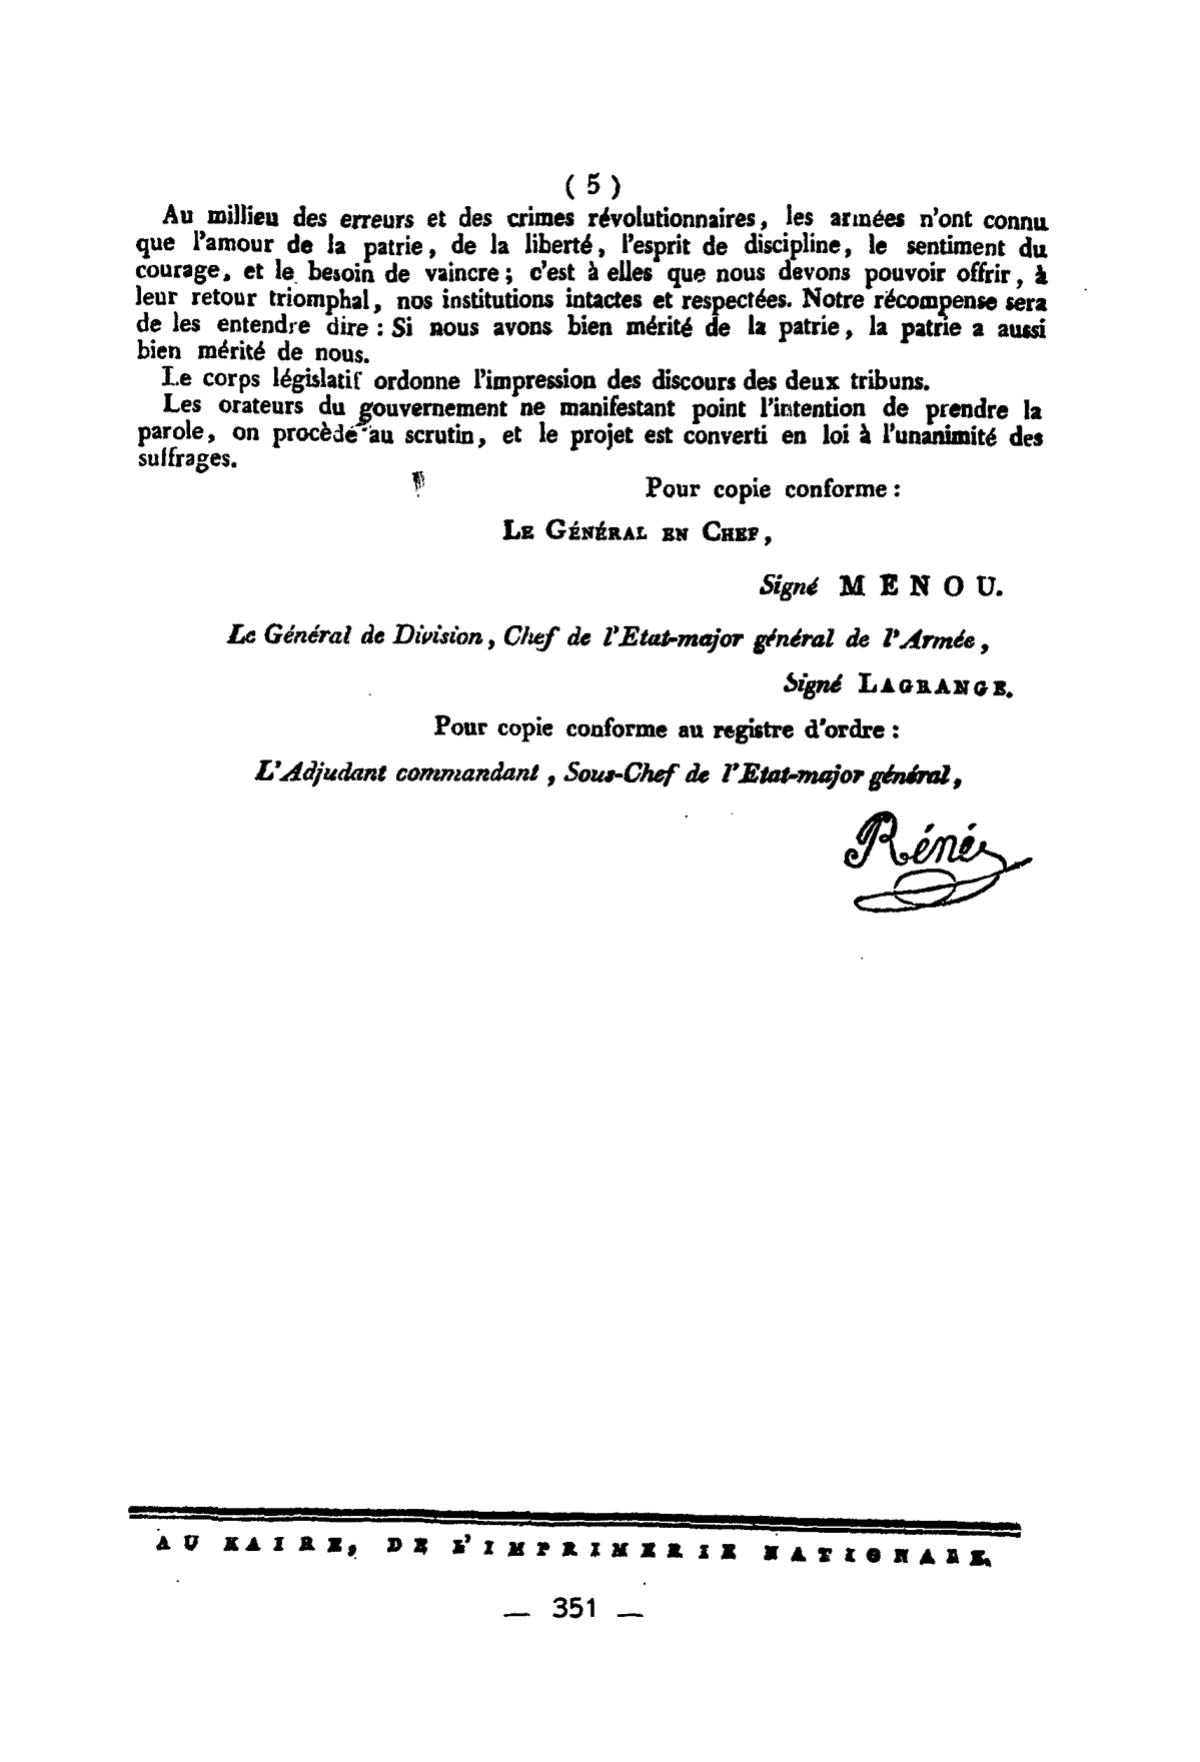 ( 5 )
Au millieu des erreurs et des crimes révolutionnaires, les armées n'ont connu
que l'amour de la patrie, de la liberté, l'esprit de discipline, le sentiment du
courage, et le besoin de vaincre ; c'est à elles que nous devons pouvoir offrir, à
leur retour triomphal, nos institutions intactes et respectées. Notre récompense sera
de les entendre dire : Si nous avons bien mérité de la patrie, la patrie a aussi
bien mérité de nous.
Le corps législatif ordonne l'impression des discours des deux tribuns.
Les orateurs du gouvernement ne manifestant point l'intention de prendre la
parole, on procède au scrutin, et le projet est converti en loi à l'unanimité des
suffrages.
Pour copie conforme :
LE GÉNÉRAL EN CHEF,
Signé MENOU.
Le Général de Division, Chef de l'Etat-major général de l'Armée,
Signé LAGRANGE.
Pour copie conforme au registre d'ordre :
L'Adjudant commandant, Sous-Chef de l'Etat-major général,
Réné
AU KAIRE, DE L'IMPRIMERIE NATIONALE.
— 351 —